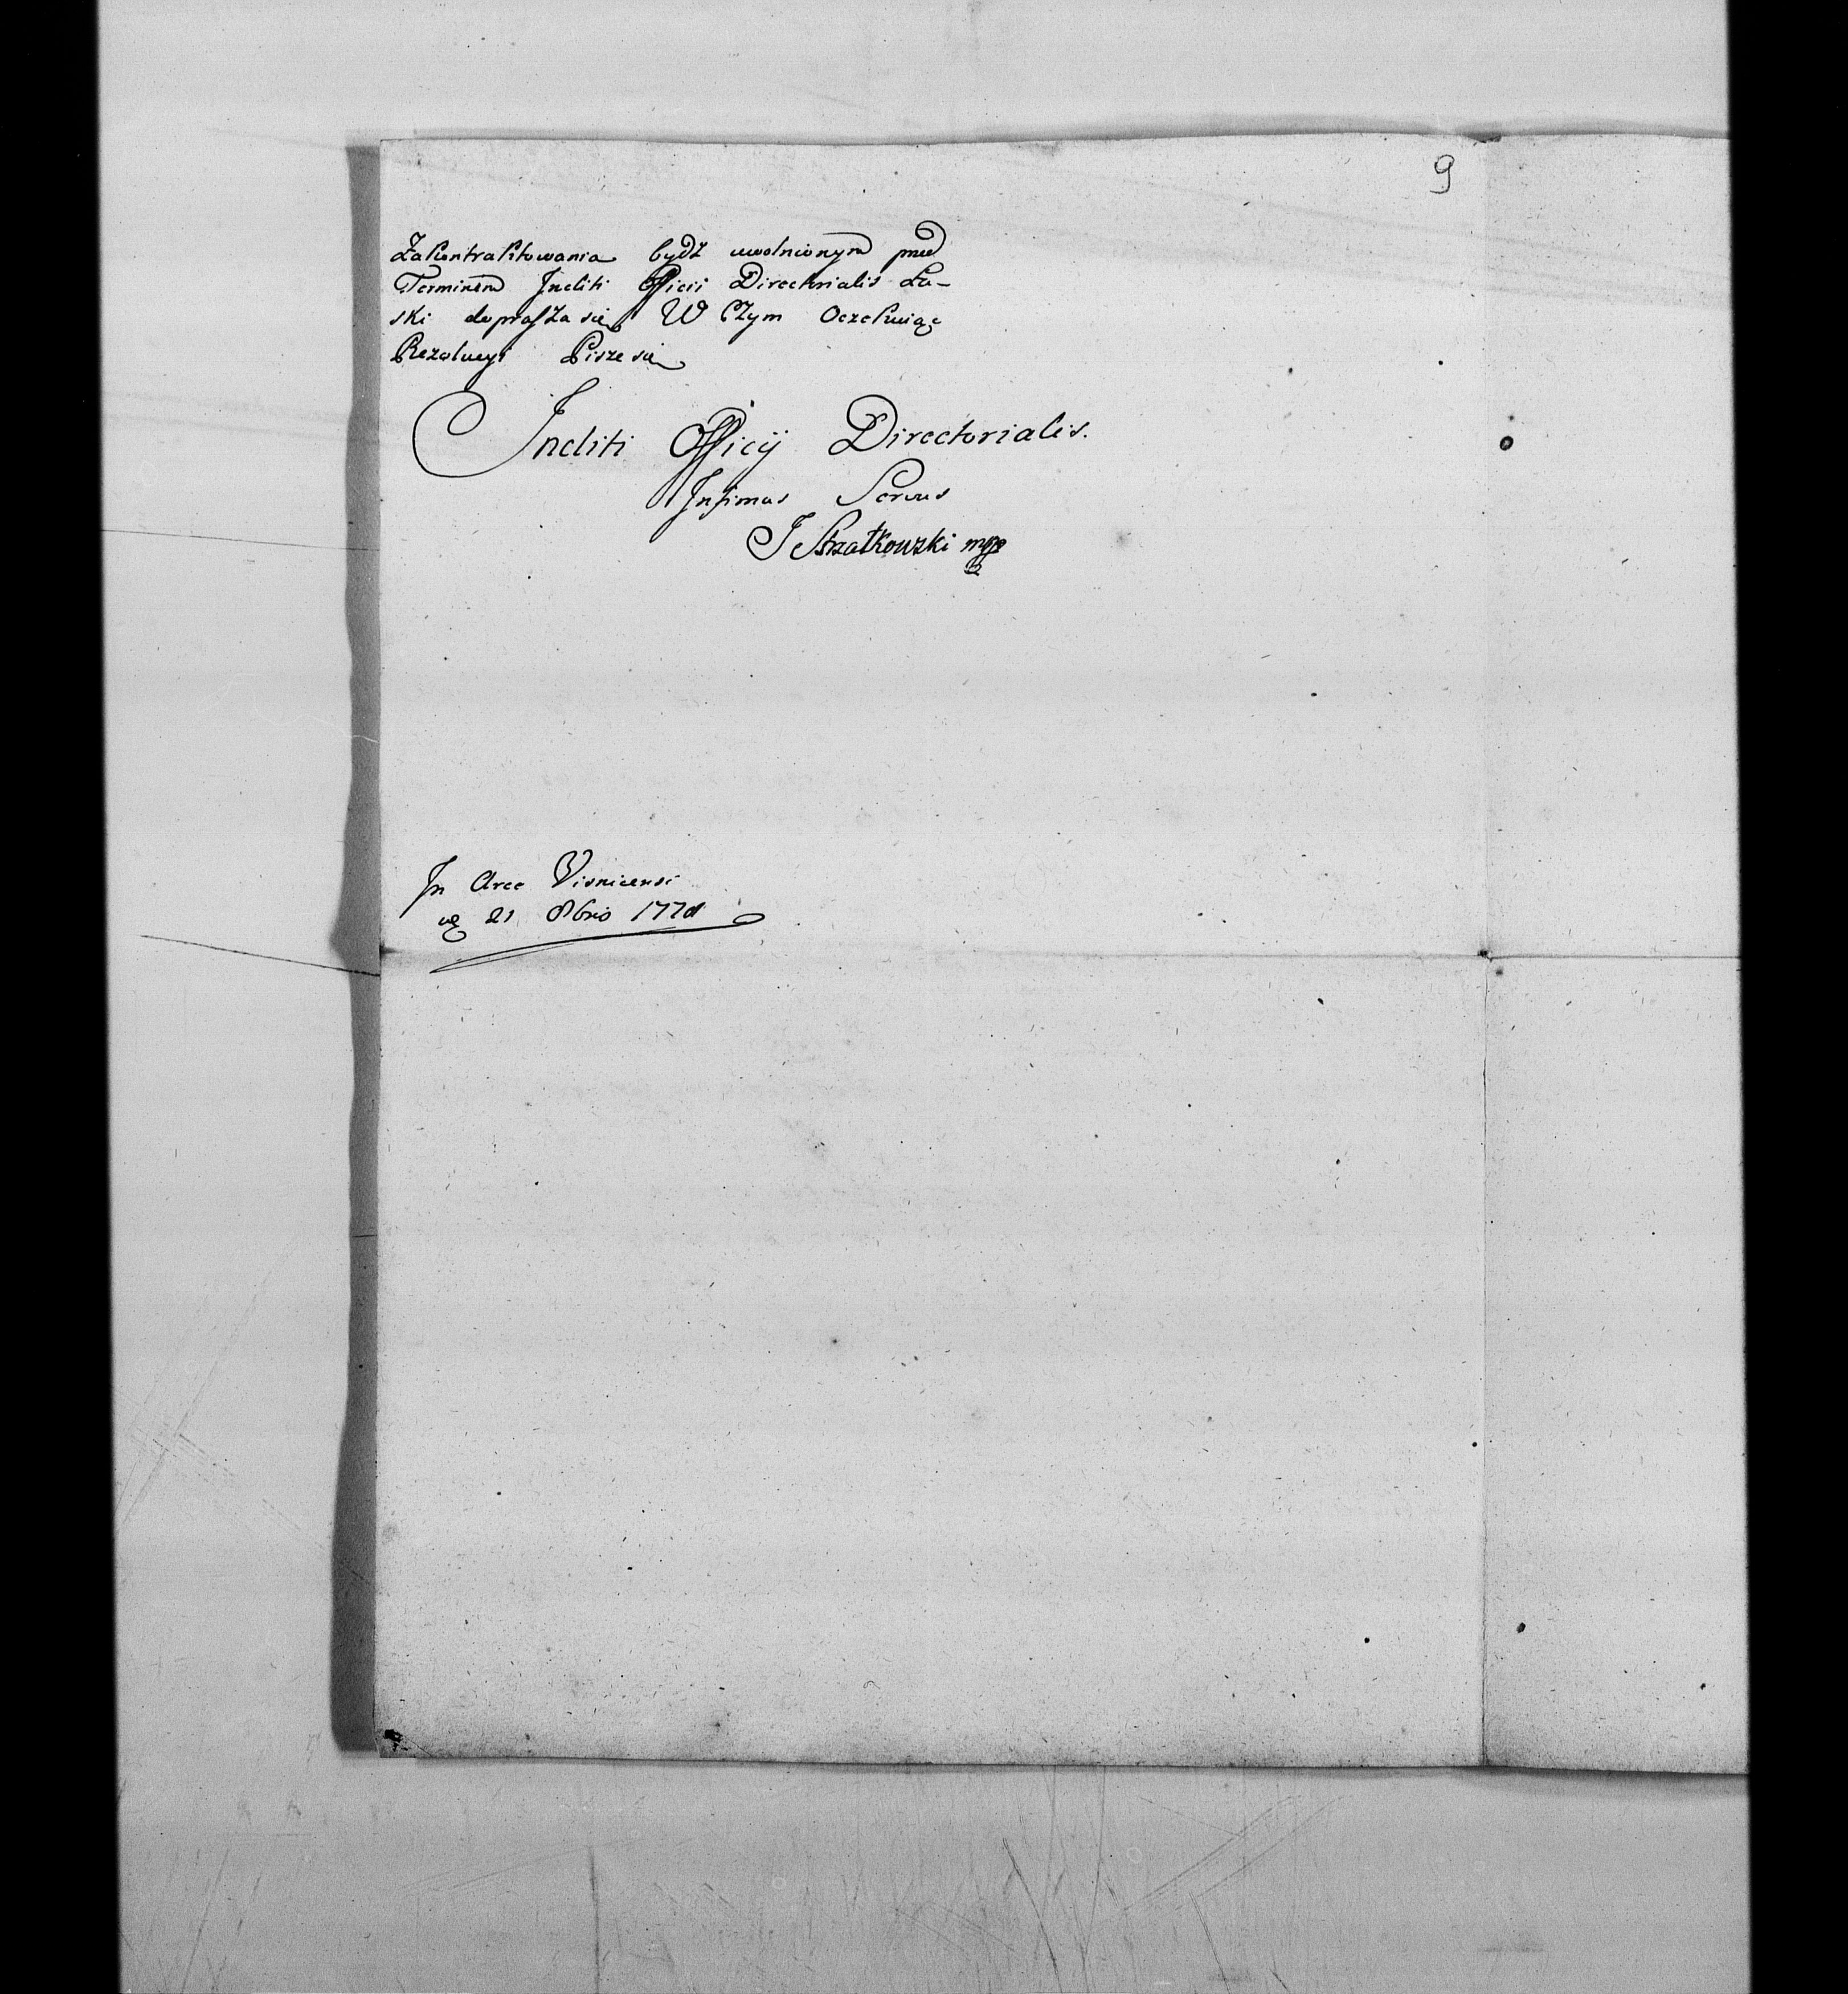 9
Zakontraktowania bydź uwolnionym przed
Terminem Incliti Officii Directorialis Ła-
ski doprasza się W Czym Oczekuiąc
Rezolucyi Pisze się
Incliti Officij Directorialis.
Infimus Servus
J Strzałkowski mpp
In Arce Visnicensi
21 8bris 1778